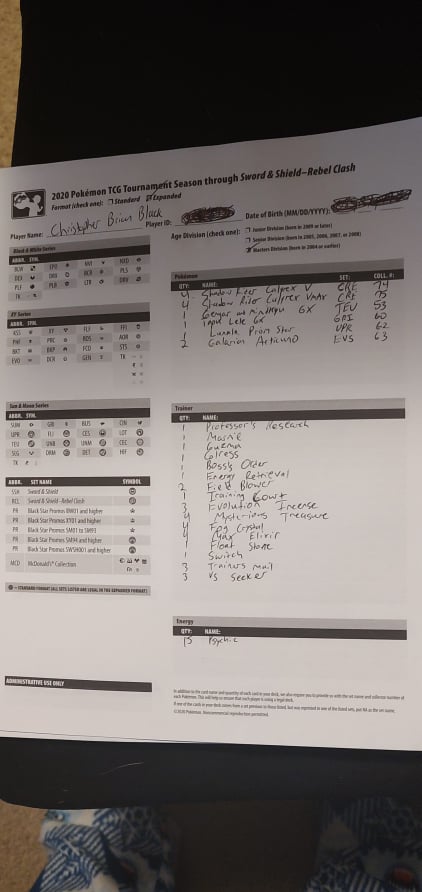 2020 Pokémon TCG Tournament Season through Sword & Shield–Rebel Clash
Format (check one): Standard Expanded
Player Name: Christopher Brian Black
Player ID:
Date of Birth (MM/DD/YYYY):
Age Division (check one):
Junior Division (born in 2009 or later)
Senior Division (born in 2005, 2006, 2007, or 2008)
Masters Division (born in 2004 or earlier)
Black & White Series
ABBR. SYM.
XY Series
ABBR. SYM.
Sun & Moon Series
ABBR. SYM.
SUM GRI BUS CIN
UPR FLI CES LOT
TEU UNB UNM CEC
SLG DRM DET HIF
TK
ABBR. SET NAME SYMBOL
SSH Sword & Shield
RCL Sword & Shield–Rebel Clash
PR Black Star Promos BW01 and higher
PR Black Star Promos XY01 and higher
PR Black Star Promos SM01 to SM93
PR Black Star Promos SM94 and higher
PR Black Star Promos SWSH001 and higher
MCD McDonald's Collection
= STANDARD FORMAT (ALL SETS LISTED ARE LEGAL IN THE EXPANDED FORMAT)
ADMINISTRATIVE USE ONLY
Pokémon
QTY: NAME: SET: COLL. #:
4 Shadow Rider Calyrex V CRE 74
4 Shadow Rider Calyrex VMAX CRE 75
1 Gengar and Mimikyu GX TEU 53
1 Tapu Lele GX GRI 60
1 Lunala Prism Star UPR 62
2 Galarian Articuno EVS 63
Trainer
QTY: NAME:
1 Professor's Research
1 Marnie
1 Guzma
1 Colress
1 Boss's Order
1 Energy Retrieval
2 Field Blower
1 Training Court
3 Evolution Incense
4 Mysterious Treasure
4 Fog Crystal
4 Max Elixir
1 Float Stone
1 Switch
3 Trainers Mail
3 VS Seeker
Energy
QTY: NAME:
15 Psychic
In addition to the card name and quantity of each card in your deck, we also require you to provide us with the set name and collector number of
each Pokémon. This will help us ensure that each player is using a legal deck.
If one of the cards in your deck comes from a set previous to those listed, but was reprinted in one of the listed sets, put NA as the set name.
©2020 Pokémon. Noncommercial reproduction permitted.